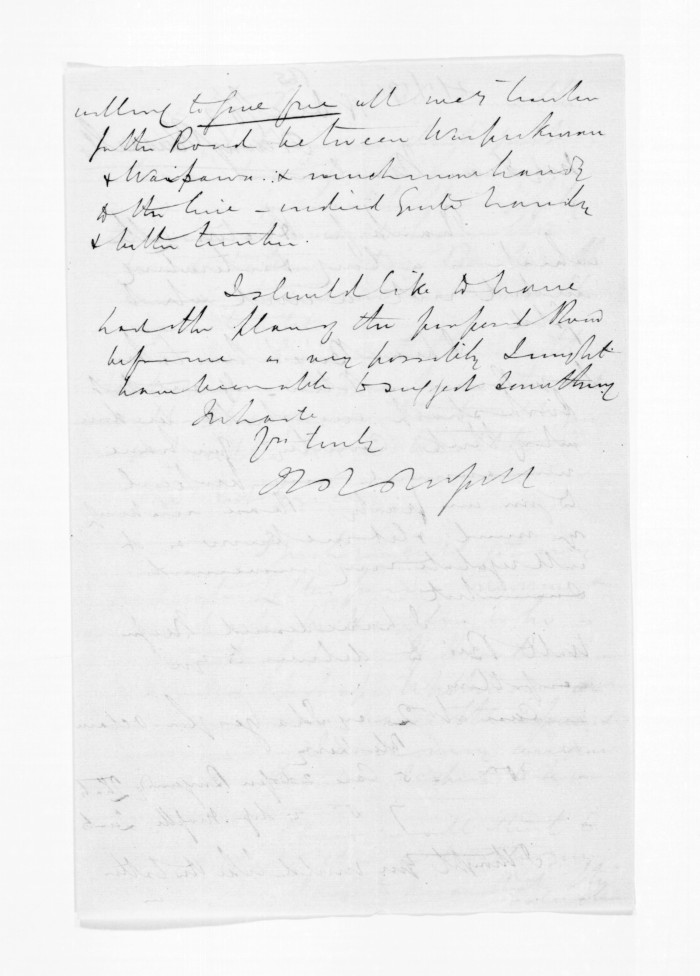 willing to give free all necy timber
for the Road between Waipukurau
& Waipawa. & much more handy
to the line – indeed quite handy
& better timber.
I should like to have
had the plan of the proposed Road
before me as very possibly I might
have been able to suggest something
In haste
Yrs truly
H R Russell